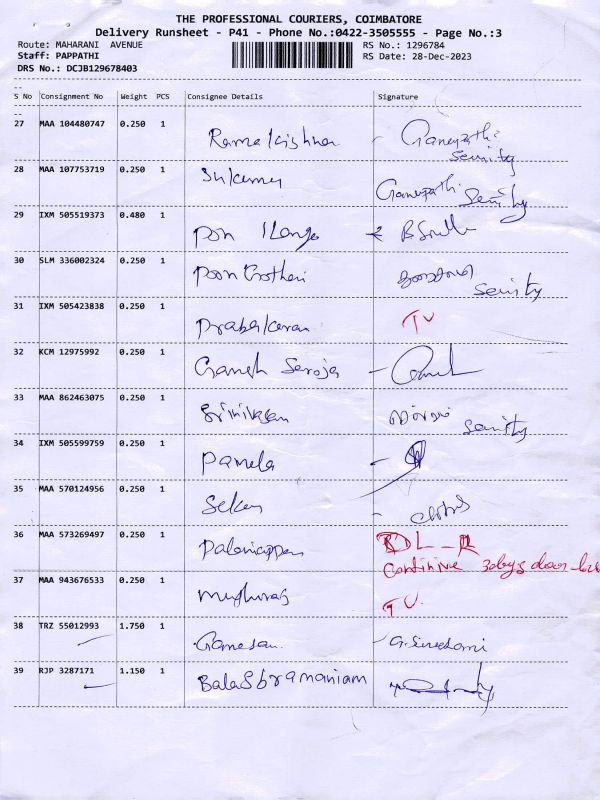 THE PROFESSIONAL COURIERS, COIMBATORE
Delivery Runsheet - P41 - Phone No.:0422-3505555 - Page No.:3
Route: MAHARANI AVENUE RS No.: 1296784
Staff: PAPPATHI RS Date: 28-Dec-2023
DRS No.: DCJB129678403
S No Consignment No Weight PCS Consignee Details Signature
27 MAA 104480747 0.250 1 Ramakrishnan - Ganapathi
Security
28 MAA 107753719 0.250 1 Sukumar Ganapathi Security
29 IXM 505519373 0.480 1 Pon Ilango
30 SLM 336002324 0.250 1 Security
31 IXM 505423838 0.250 1 Prabakaran TV
32 KCM 12975992 0.250 1 Ganesh Saroja -
33 MAA 862463075 0.250 1 Srinivasan Security
34 IXM 505599759 0.250 1 Pamela -
35 MAA 570124956 0.250 1 Sekar -
36 MAA 573269497 0.250 1 Palaniappan DL
Continive 3days door lock
37 MAA 943676533 0.250 1 Muthuraj TV.
38 TRZ 55012993 1.750 1 Ganesan -
39 RJP 3287171 1.150 1 BalaSbramaniam